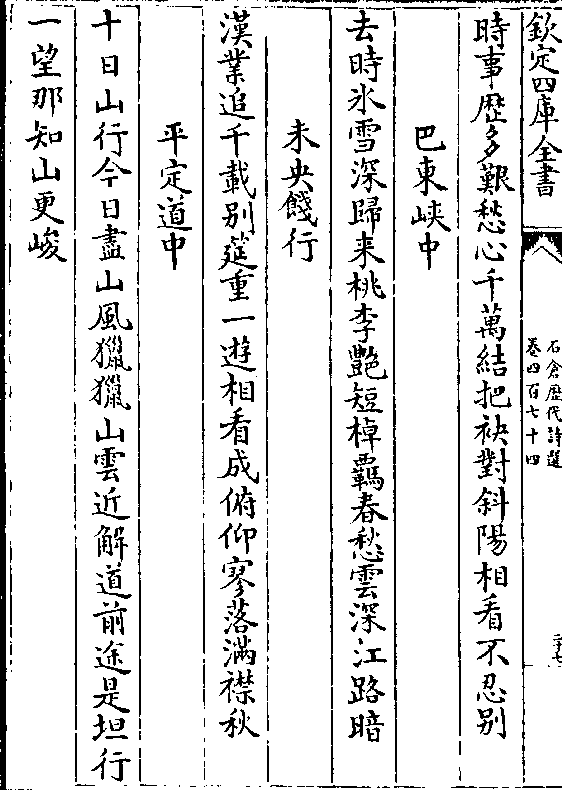 欽定四庫全書
石倉歷代詩選
卷四百七十四
二十七
時事歷多艱愁心千萬結把袂對斜陽相看不忍别
巴東峽中
去時氷雪深歸来桃李艶短棹覊春愁雲深江路暗
未央餞行
漢業追千載别筵重一遊相看成俯仰寥落滿襟秋
平定道中
十日山行今日盡山風獵獵山雲近解道前途是坦行
一望那知山更峻